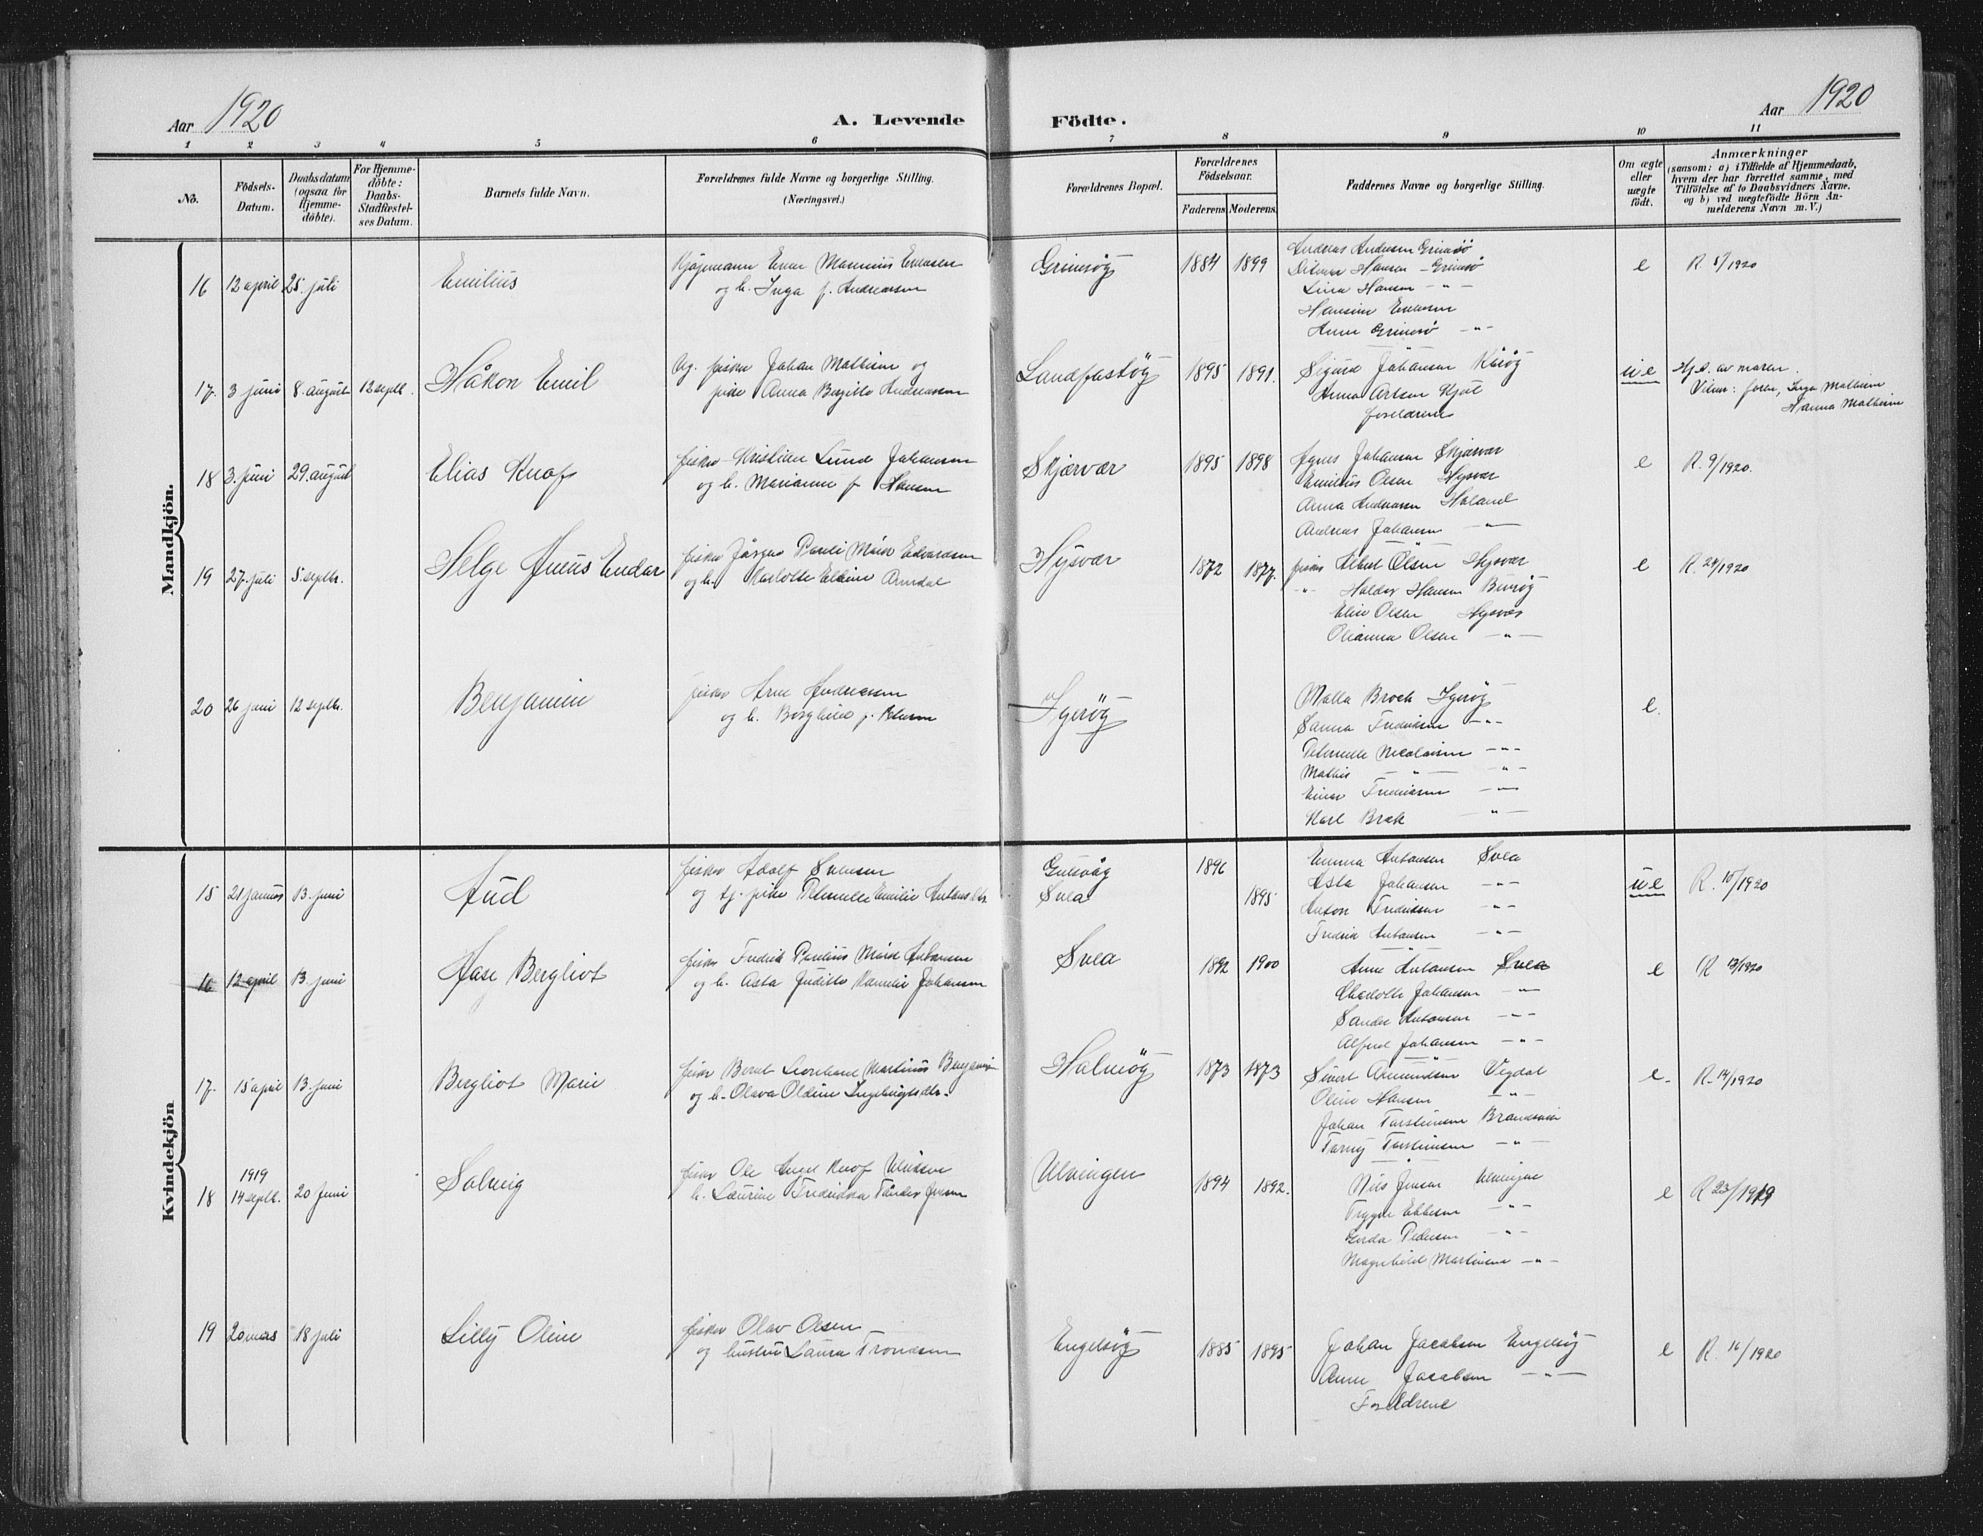 Aar 1920
A. Levende Födte.
Aar 1920
1 2 3 4 5 6 7 8 9 10 11
No.
Födsels-Datum.
Daabsdatum (ogsaa for Hjemme-döbte).
For Hjemme-döbte: Daabs-Stadfæstel-ses Datum.
Barnets fulde Navn.
Forældrenes fulde Navne og borgerlige Stilling. (Næringsvei.)
Forældrenes Bopæl.
Forældrenes Födselsaar.
Faderens. Moderens.
Faddernes Navne og borgerlige Stilling.
Om ægte eller uægte födt.
Anmærkninger
(saasom: a) i Tilfælde af Hjemmedaab, hvem der har forrettet samme, med Tilföielse af to Daabsvidners Navne. og b) ved uægtefödte Börn An-melderens Navn m. V.)
Mandkjön.
16 12 april 25. juli Emilius
og h. Inga f. Andreassen
Grimsöy 1884 1899
Andreas Andersen Grimsö
Hansen - Grimsö
Lina Hansen - " -
Anna Grimsö - " -
e R. 5/1920
17. 3 juni 8. august 12 septb. Håkon Emil
Ug. fisker Johan Mathisen og
pike Anna Birgitte Andreassen
Landfastöy 1895 1891.
Sigurd Johansen
foreldrene
ue
Vitner: foren, Inga Mathisen
Hanna Mathisen
18 3. juni 29. august Elias Knof
fisker Kristian Lund Johansen
og h. Marianne f. Hansen
Skjærvær 1895 1898
Agnes Johansen Skjærvær
Emilius Olsen Hysvær
Anna Andreassen Haland
Andreas Johansen - " -
e R. 9/1920.
19 27. juli 5. septbr. Helge Junus Endar
fisker Jörgen Pauli Moses Edvardsen
og h. Karlotte Elbine Amdal
Hysvær 1872 1877.
fisker Albert Olsen Hysvær
- " - Haldor Hansen
Elise Olsen Hysvær
Olianna Olsen - " -
e R. 24/1920
20 26 juni 12 septbr. Benjamin
fisker Arne Andreassen
og h. Borghild f. Petersen
Igeröy
Malla Brock Igeröy
Sanna Fredriksen - " -
Peternelle Nicolaisen - " -
Mathis - " - - " -
Einar Fredriksen - " -
Karl Brock - " -
e.
Kvindekjön
15 21 januar 13. juni Aud
fisker Adolf Svensen
og ug. pike Peternelle Emilie Antonsdtr.
Gulsvåg
Svea
1896 1895
Emma Antonsen Svea
Asta Johansen - " -
Anton Fredriksen - " -
Fredrik Antonsen - " -
ue R. 10/1920
16 12 april 13. juni Aase Bergliot
fisker Fredrik Paulius Moses Antonsen
og h. Asta Juditte Kornelie Johansen
Svea 1892 1900
Anna Antonsen Svea
Charlotte Johansen - " -
Sander Antonsen - " -
Alfred Johansen - " -
e R 13/1920
17. 15 april 13. juni Bergliot Marie
fisker Bernt Leonhard Martinus Benjamin
og h. Olava Oldine Ingebrigtsdtr.
Halmöy 1873 1873
Sivert Amundsen Vegdal
Oline Hansen - " -
Johan Torsteinsen
Torsteinsen - " -
e. R. 14/1920
18 1919 14 septb. 20 juni Solveig
fisker Ole Angel Knof Ulriksen
h. Laurine Fredrikka Tönder Jensen
Ulvingen 1894 1892.
Nils Jensen Ulvingen
Trygve Ebbesen - " -
Gerda Pedersen - " -
Magnhild Martinsen - " -
e R 23/1919
19 20 mars 18 juli Lilly Oline
fisker Olav Olsen
og hustru Laura Trondsen
Engelsöy 1885 1895
Johan Jacobsen Engelsöy
Anna Jacobsen - " -
Foreldrene
e R. 16/1920